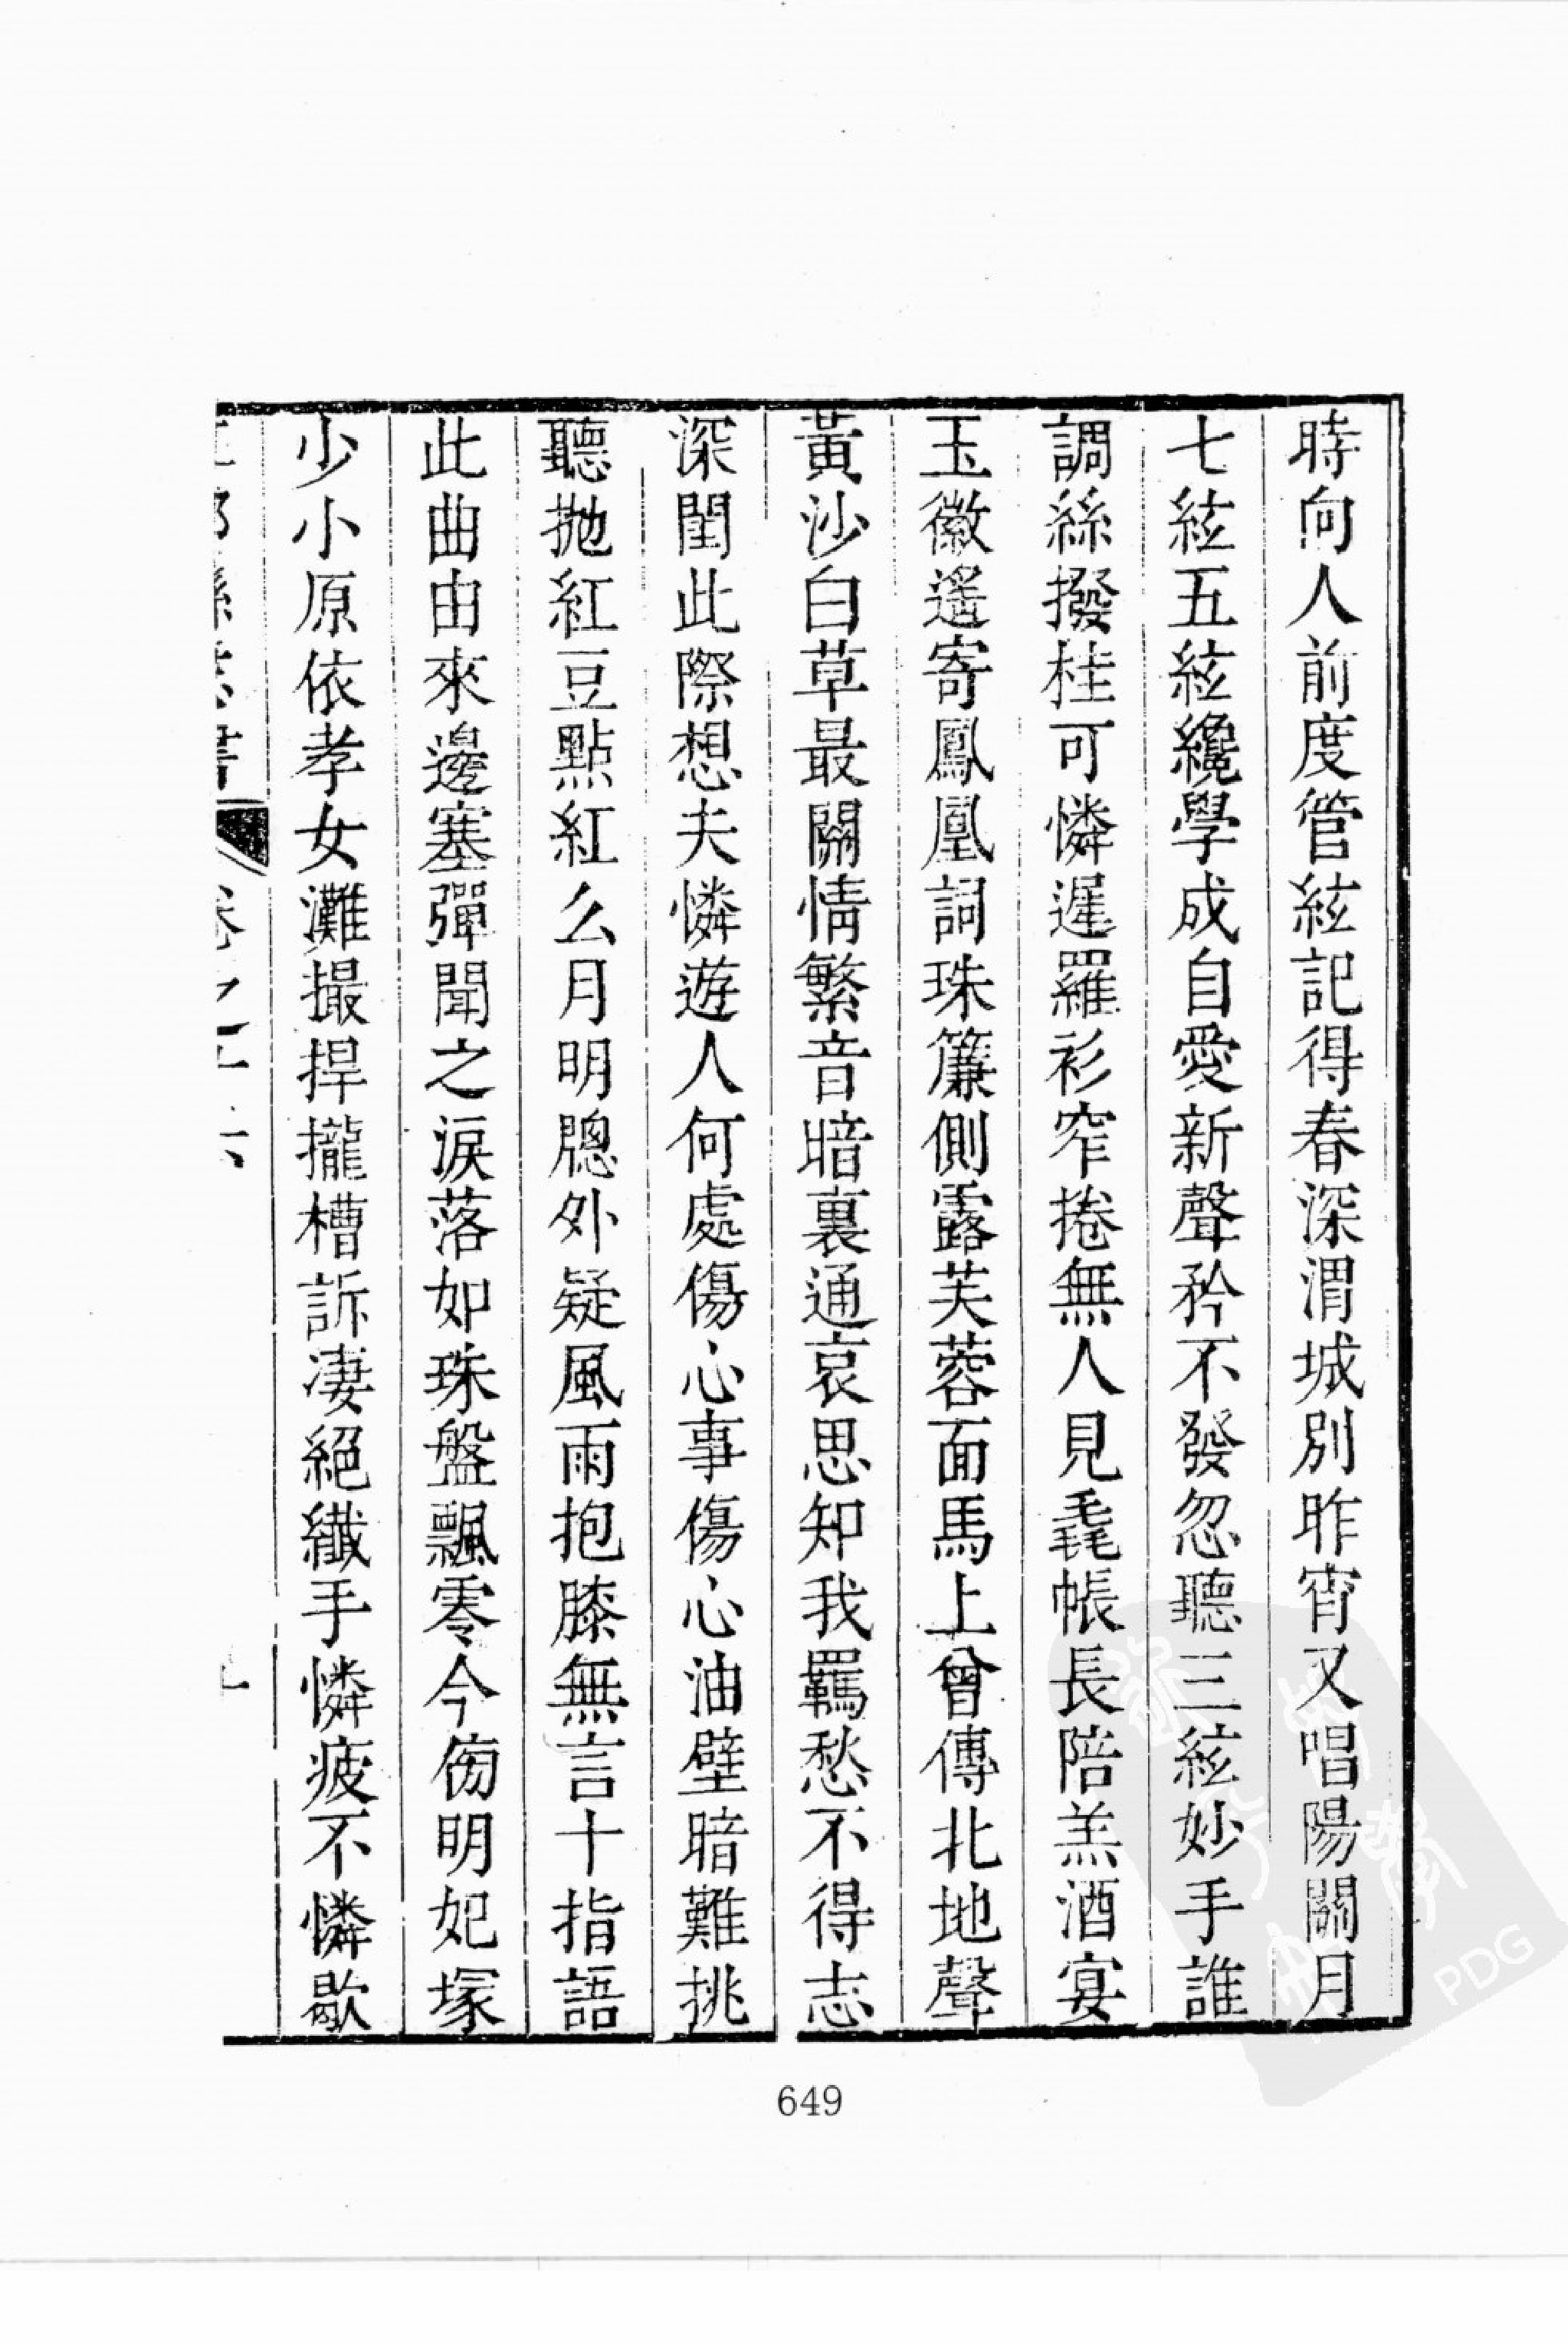 時向人前度管絃記得春深渭城別昨宵又唱陽關月
七絃五絃纔學成自愛新聲矜不發忽聽三絃妙手誰
調絲撥桂可憐遲羅衫窄捲無人見毳帳長陪羔酒宴
玉徽遙寄鳳凰詞珠簾側露芙蓉面馬上曾傳北地聲
黃沙白草最關情繁音暗裏通哀思知我羈愁不得志
深閨此際想夫憐遊人何處傷心事傷心油壁暗難挑
聽拋紅豆點紅么月明牕外疑風雨抱膝無言十指語
此曲由來邊塞彈聞之淚落如珠盤飄零今傍明妃塚
少小原依孝女灘撮捍攏槽訴淒絕纖手憐疲不憐歇
649
PDG